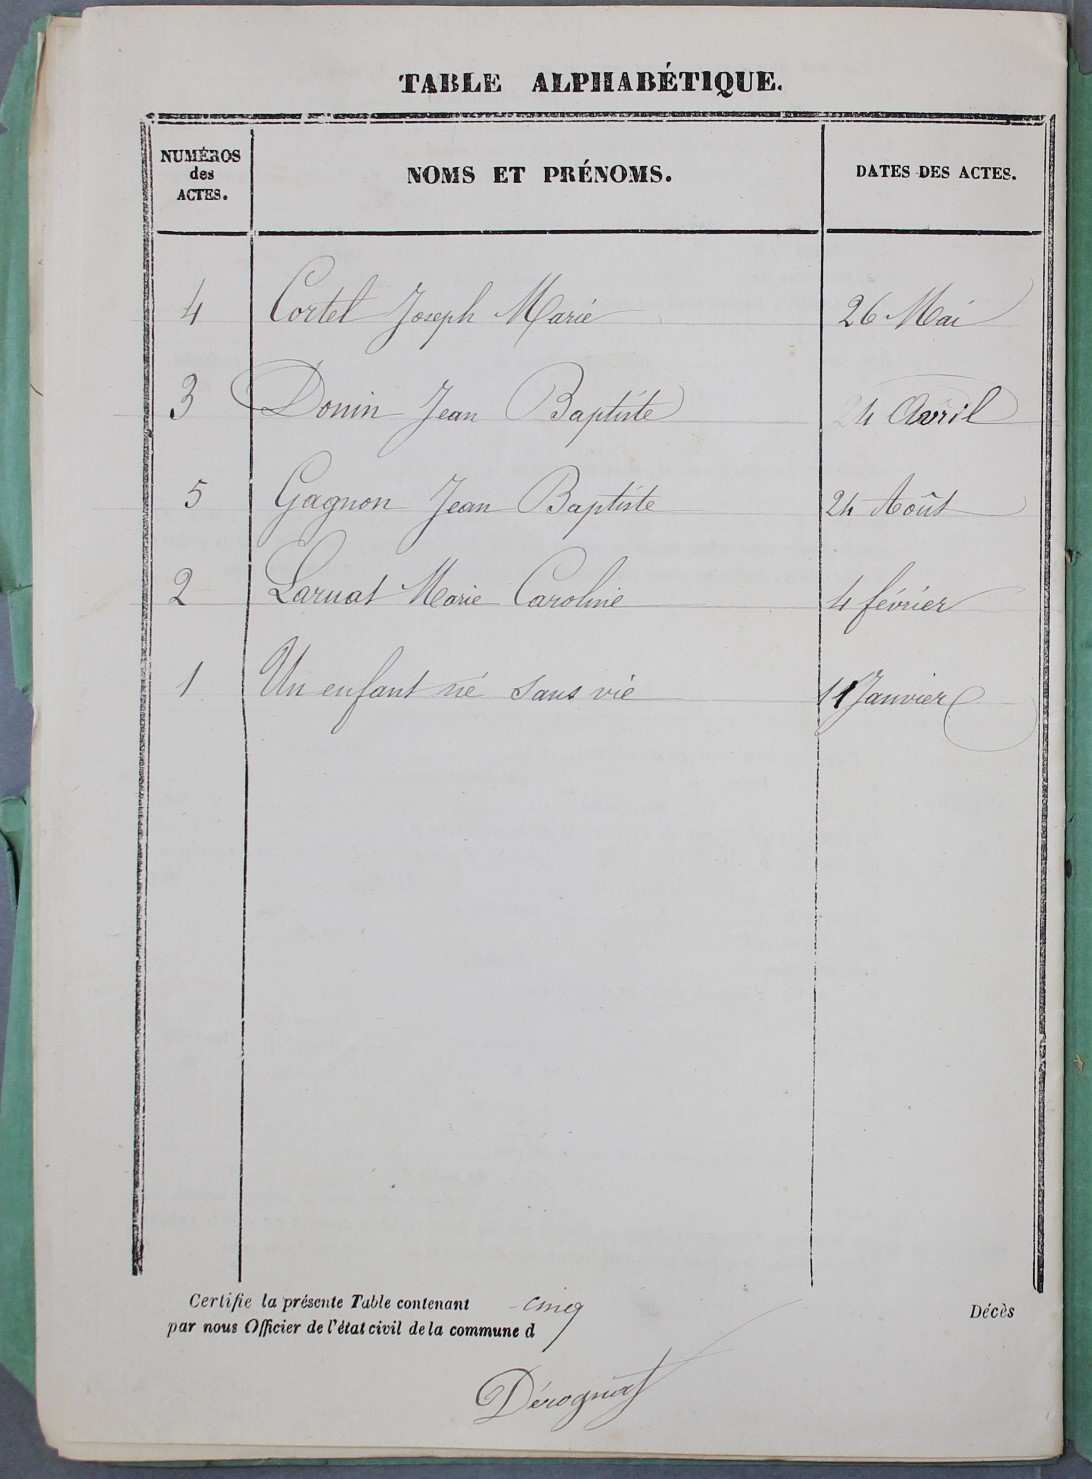 TABLE ALPHABÉTIQUE.
NUMÉROS des ACTES. NOMS ET PRÉNOMS. DATES DES ACTES.
4 Cortel Joseph Marie 26 Mai
3 Donin Jean Baptiste 24 Avril
5 Gagnon Jean Baptiste 24 Août
2 Laruat Marie Caroline 4 février
1 Un enfant né sans vie 11 Janvier
Certifie la présente Table contenant cinq Décès
par nous Officier de l'état civil de la commune d
Dérognat